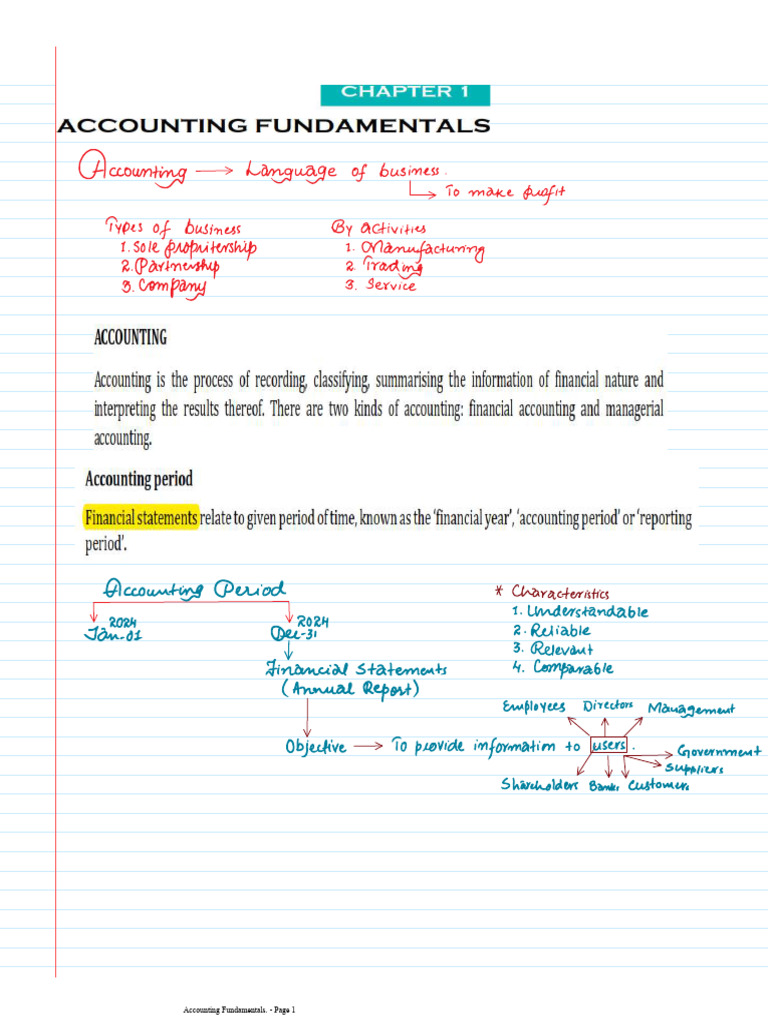 CHAPTER 1
ACCOUNTING FUNDAMENTALS
Accounting → Language of business.
→ To make profit
Types of business
1. Sole propritership
2. Partnership
3. Company
By activities
1. Manufacturing
2. Trading
3. Service
ACCOUNTING
Accounting is the process of recording, classifying, summarising the information of financial nature and
interpreting the results thereof. There are two kinds of accounting: financial accounting and managerial
accounting.
Accounting period
Financial statements relate to given period of time, known as the 'financial year', 'accounting period' or 'reporting
period'.
Accounting Period
2024
Jan-01
2024
Dec-31
Financial Statements
(Annual Report)
* Characteristics
1. Understandable
2. Reliable
3. Relevant
4. Comparable
Objective → To provide information to users.
Employees Directors Management
Government
Suppliers
Shareholders Banks Customers
Accounting Fundamentals. - Page 1